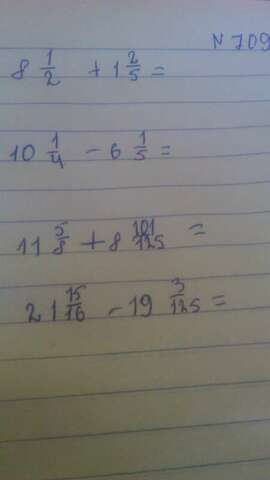 N 709
8 1/2 + 1 2/5 =
10 1/4 - 6 1/5 =
11 5/8 + 8 101/125 =
21 15/16 - 19 3/125 =